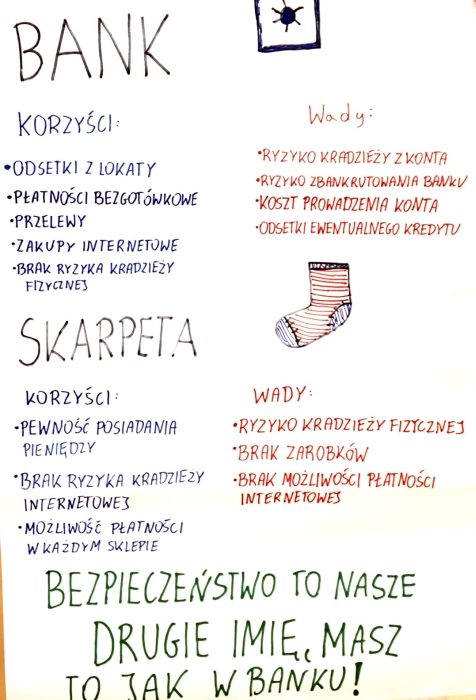 BANK
KORZYŚCI:
•ODSETKI Z LOKATY
•PŁATNOŚCI BEZGOTÓWKOWE
•PRZELEWY
•ZAKUPY INTERNETOWE
•BRAK RYZYKA KRADZIEŻY
FIZYCZNEJ
Wady:
•RYZYKO KRADZIEŻY Z KONTA
•RYZYKO ZBANKRUTOWANIA BANKU
•KOSZT PROWADZENIA KONTA
•ODSETKI EWENTUALNEGO KREDYTU
SKARPETA
KORZYŚCI:
•PEWNOŚĆ POSIADANIA
PIENIĘDZY
•BRAK RYZYKA KRADZIEŻY
INTERNETOWEJ
•MOŻLIWOŚĆ PŁATNOŚCI
W KAŻDYM SKLEPIE
WADY:
•RYZYKO KRADZIEŻY FIZYCZNEJ
•BRAK ZAROBKÓW
•BRAK MOŻLIWOŚCI PŁATNOŚCI
INTERNETOWEJ
BEZPIECZEŃSTWO TO NASZE
DRUGIE IMIĘ, MASZ
TO JAK W BANKU!